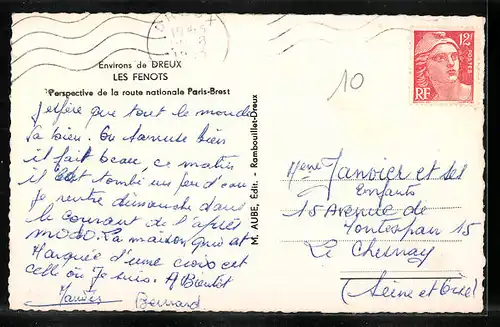 Environs de DREUX
LES FENOTS
Perspective de la route nationale Paris-Brest
J'espère que tout le monde
va bien. On s'amuse bien
il fait beau, ce matin
il est tombé un peu d'eau
Je rentre dimanche dans
le courant de l'après
La maison qui est
Marquée d'une croix est
celle où Je suis. A Bientôt
Bernard
M. AUBE, Édit. - Rambouillet-Dreux
10
12F
POSTES
RF
Mme Janvier et ses
Enfants
15 Avenue de
Montespan 15
Le Chesnay
(Seine et Oise)